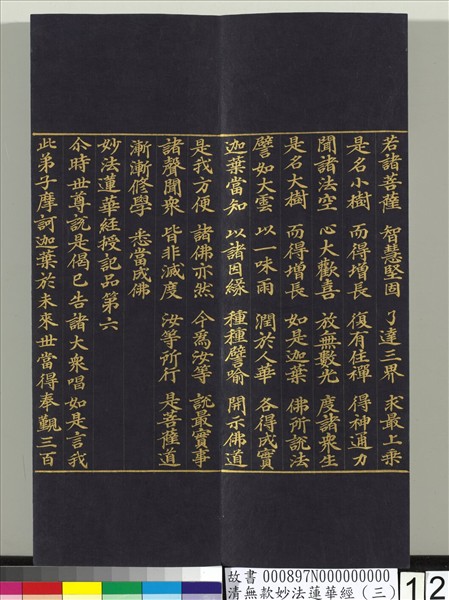 若諸菩薩　智慧堅固　了達三界　求最上乘
是名小樹　而得增長　復有住禪　得神通力
聞諸法空　心大歡喜　放無數光　度諸衆生
是名大樹　而得增長　如是迦葉　佛所說法
譬如大雲　以一味雨　潤於人華　各得成實
迦葉當知　以諸因緣　種種譬喻　開示佛道
是我方便　諸佛亦然　今爲汝等　說最實事
諸聲聞衆　皆非滅度　汝等所行　是菩薩道
漸漸修學　悉當成佛
妙法蓮華經授記品第六
尒時世尊說是偈已告諸大衆唱如是言我
此弟子摩訶迦葉於未來世當得奉覲三百
故書 000897N000000000
清無款妙法蓮華經（三）
12